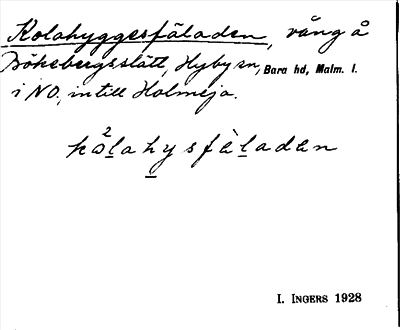 Kolahyggesfäladen, vång å
Bökebergsslätt, Hyby sn, Bara hd, Malm. l.
i NO., intill Holmeja.
2
kolahysfèladen
I. INGERS 1928